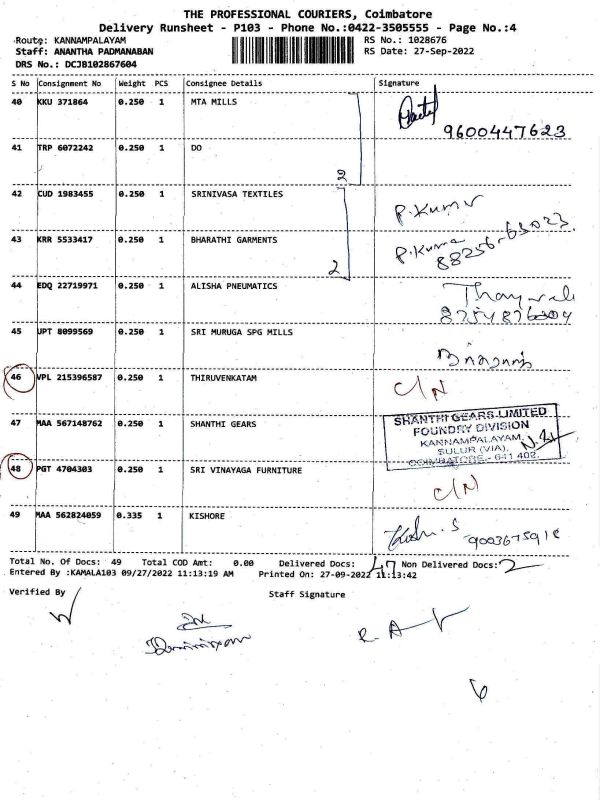 THE PROFESSIONAL COURIERS, Coimbatore
Delivery Runsheet - P103 - Phone No.:0422-3505555 - Page No.:4
Route: KANNAMPALAYAM RS No.: 1028676
Staff: ANANTHA PADMANABAN RS Date: 27-Sep-2022
DRS No.: DCJB102867604
S No Consignment No Weight PCS Consignee Details Signature
40 KKU 371864 0.250 1 MTA MILLS
9600447623
41 TRP 6072242 0.250 1 DO
2
42 CUD 1983455 0.250 1 SRINIVASA TEXTILES P.Kumar
43 KRR 5533417 0.250 1 BHARATHI GARMENTS P.Kumar
88256-63023.
2
44 EDQ 22719971 0.250 1 ALISHA PNEUMATICS
45 UPT 8099569 0.250 1 SRI MURUGA SPG MILLS
46 VPL 215396587 0.250 1 THIRUVENKATAM C/N
47 MAA 567148762 0.250 1 SHANTHI GEARS
SHANTHI GEARS LIMITED
FOUNDRY DIVISION
KANNAMPALAYAM,
SULUR (VIA),
COIMBATORE - 641 402.
48 PGT 4704303 0.250 1 SRI VINAYAGA FURNITURE C/N
49 MAA 562824059 0.335 1 KISHORE
Total No. Of Docs: 49 Total COD Amt: 0.00 Delivered Docs: 47 Non Delivered Docs: 2
Entered By :KAMALA103 09/27/2022 11:13:19 AM Printed On: 27-09-2022 11:13:42
Verified By Staff Signature